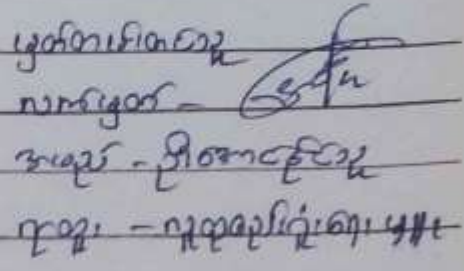 မှတ်တမ်းတင်သူ
လက်မှတ် -
အမည် - ဦးအောင်နိုင်သူ
ရာထူး - လူထုစည်းရုံးရေးမှူး